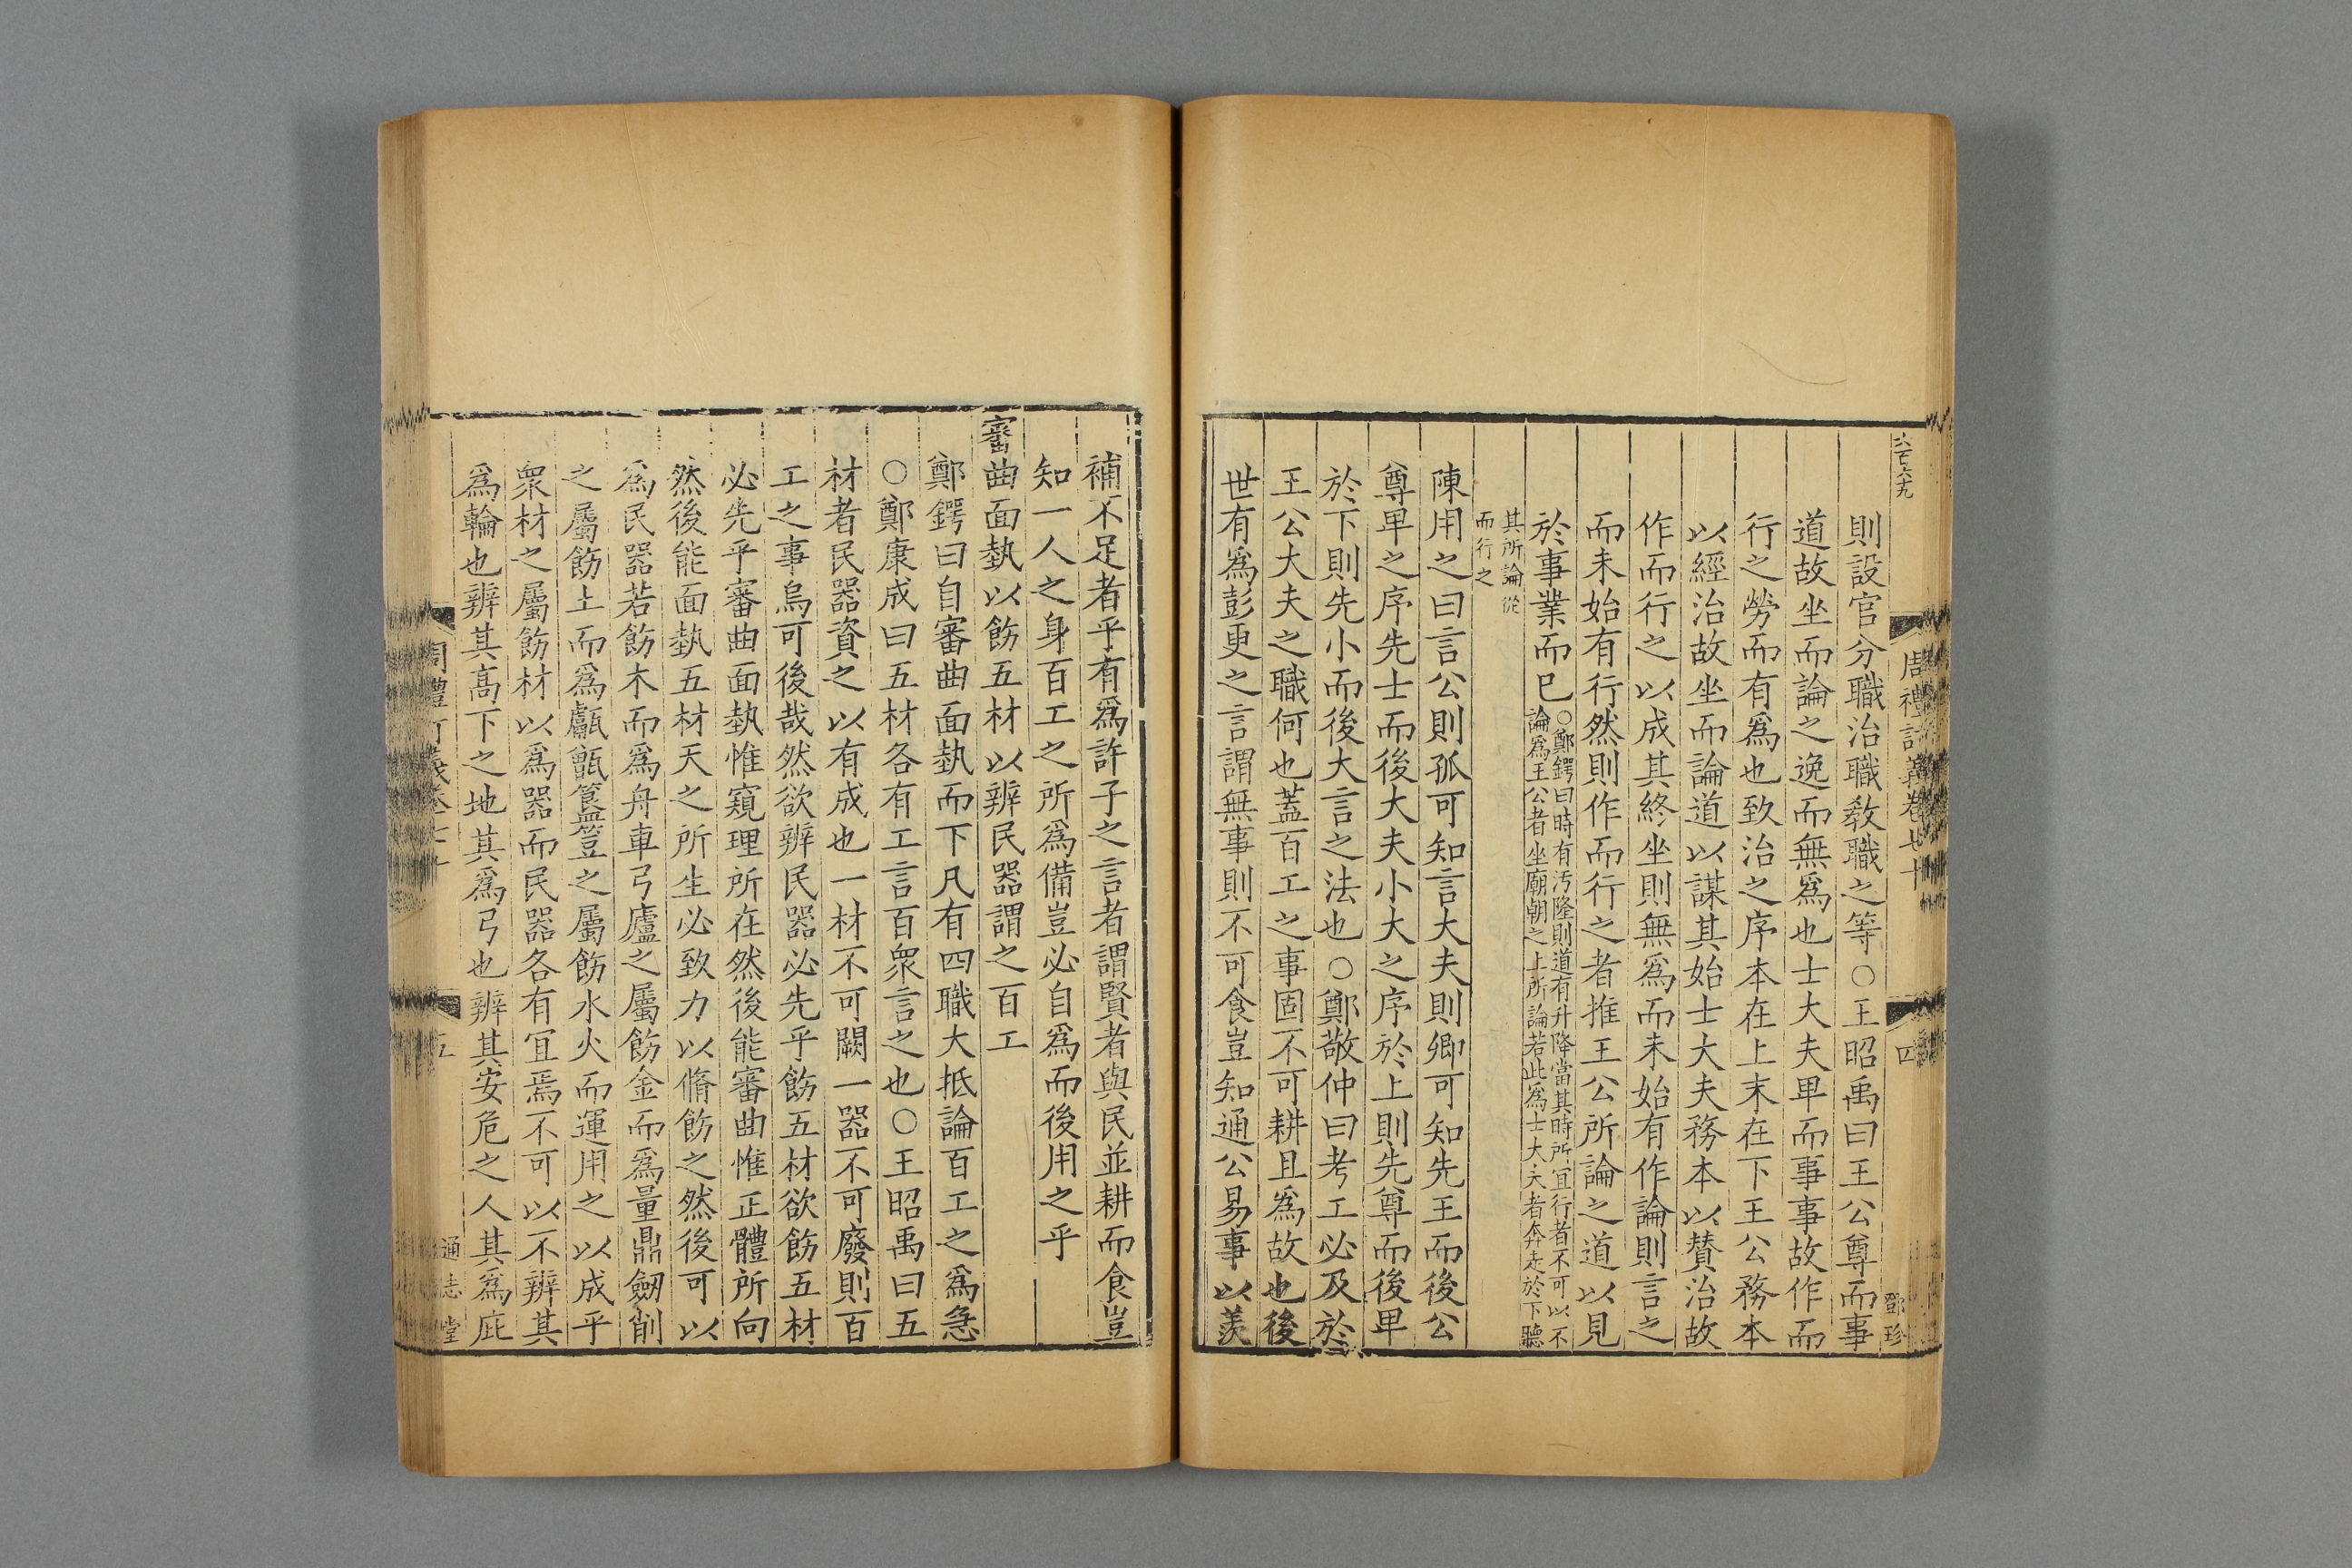 六百六十九
周禮訂義卷七十
四
鄧珍
則設官分職治職敎職之等○王昭禹曰王公尊而事
道故坐而論之逸而無爲也士大夫卑而事事故作而
行之勞而有爲也致治之序本在上末在下王公務本
以經治故坐而論道以謀其始士大夫務本以賛治故
作而行之以成其終坐則無爲而未始有作論則言之
而未始有行然則作而行之者推王公所論之道以見
於事業而已○鄭鍔曰時有汚隆則道有升降當其時所宜行者不可以不
論爲王公者坐廟朝之上所論若此爲士大夫者奔走於下聽
其所論從
而行之
陳用之曰言公則孤可知言大夫則卿可知先王而後公
尊卑之序先士而後大夫小大之序於上則先尊而後卑
於下則先小而後大言之法也○鄭敬仲曰考工必及於
王公大夫之職何也蓋百工之事固不可耕且爲故也後
世有爲彭更之言謂無事則不可食豈知通公易事以羨
補不足者乎有爲許子之言者謂賢者與民並耕而食豈
知一人之身百工之所爲備豈必自爲而後用之乎
審曲面埶以飭五材以辨民器謂之百工
鄭鍔曰自審曲面埶而下凡有四職大抵論百工之爲急
○鄭康成曰五材各有工言百衆言之也○王昭禹曰五
材者民器資之以有成也一材不可闕一器不可廢則百
工之事烏可後哉然欲辨民器必先乎飭五材欲飭五材
必先乎審曲面埶惟窺理所在然後能審曲惟正體所向
然後能面埶五材天之所生必致力以脩飭之然後可以
爲民器若飭木而爲舟車弓廬之屬飭金而爲量鼎劒削
之屬飭土而爲甗甑簋豆之屬飭水火而運用之以成乎
衆材之屬飭材以爲器而民器各有宜焉不可以不辨其
爲輪也辨其高下之地其爲弓也辨其安危之人其爲庇
五
通志堂